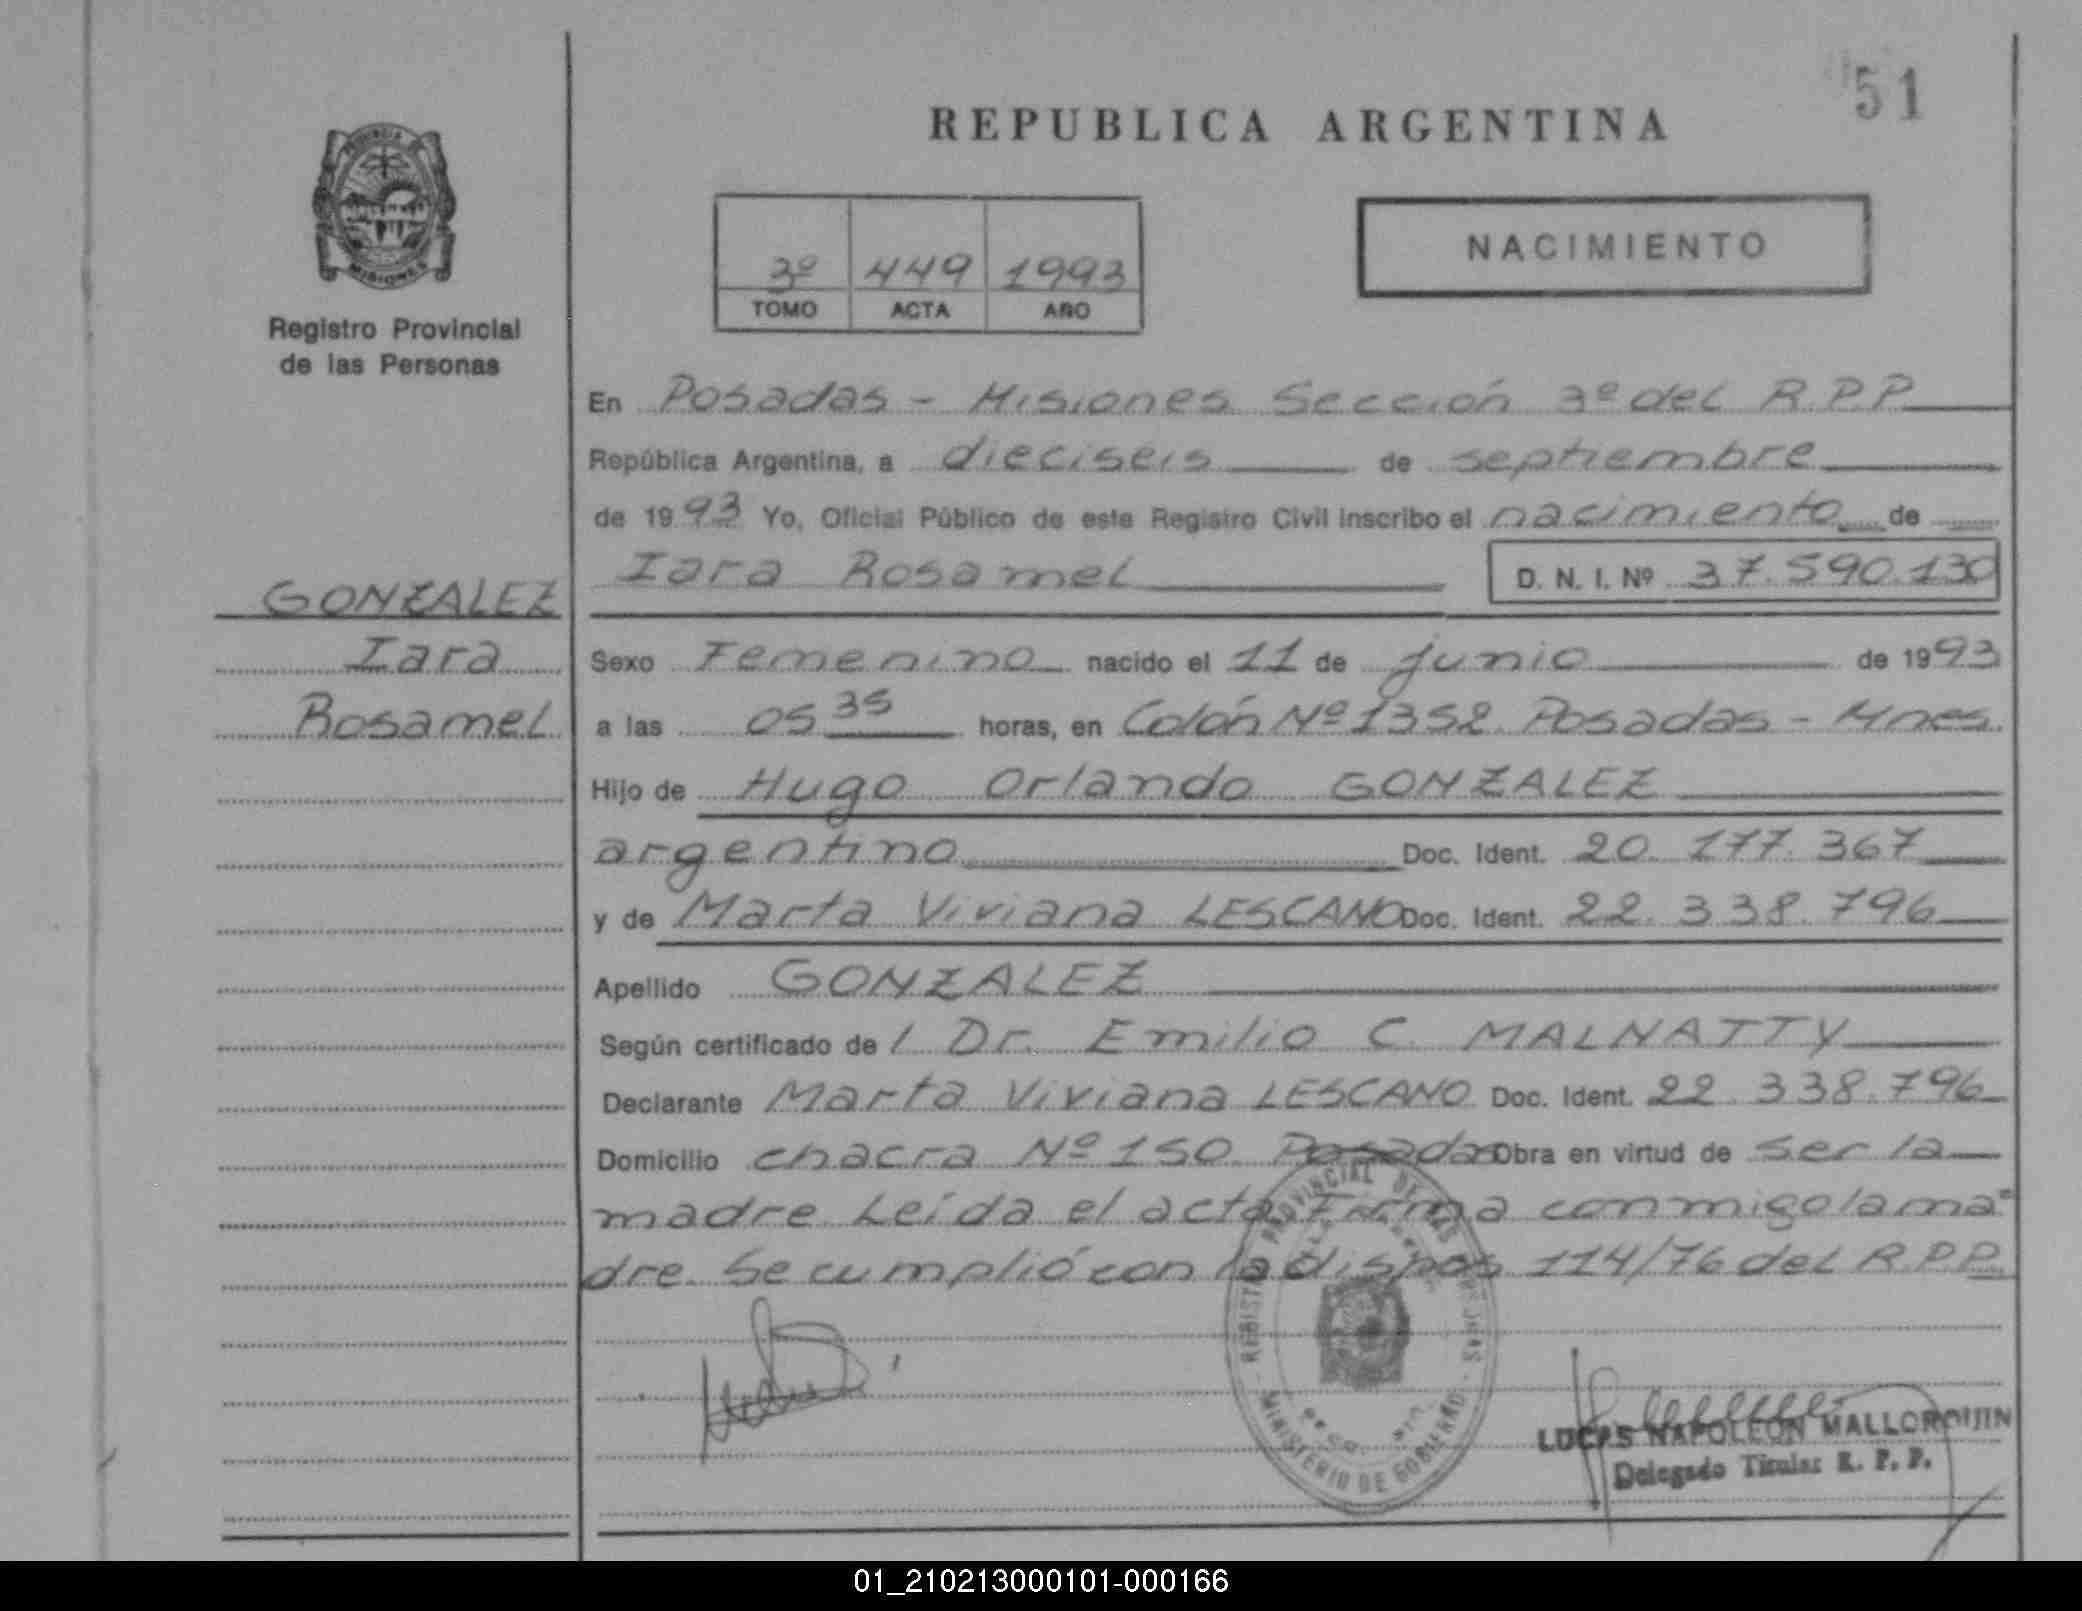 51
REPUBLICA ARGENTINA
PROVINCIA DE
MISIONES
Registro Provincial
de las Personas
3º 449 1993
TOMO ACTA AÑO
NACIMIENTO
En Posadas - Misiones Sección 3º del R.P.P
República Argentina, a dieciseis de septiembre
de 1993 Yo, Oficial Público de este Registro Civil inscribo el nacimiento de
Iara Rosamel D. N. I. Nº 37.590.130
GONZALEZ
Iara
Rosamel
Sexo Femenino nacido el 11 de junio de 1993
a las 05 35 horas, en Colón Nº 1352 Posadas - Mnes.
Hijo de Hugo Orlando GONZALEZ
argentino Doc. Ident. 20.177.367
y de Marta Viviana LESCANO Doc. Ident. 22.338.796
Apellido GONZALEZ
Según certificado de l Dr. Emilio C. MALNATTY
Declarante Marta Viviana LESCANO Doc. Ident. 22.338.796
Domicilio chacra Nº 150 Posadas Obra en virtud de ser la
madre Leída el acta Firma conmigo la ma=
dre. Se cumplió con la dispos 114/76 del R.P.P.
REGISTRO PROVINCIAL DE LAS PERSONAS
MINISTERIO DE GOBIERNO
LUCAS NAPOLEON MALLORQUIN
Delegado Titular R. P. P.
01_210213000101-000166